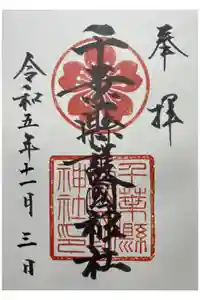 奉拝
千葉縣護國神社
千葉縣
護國
神社之印
令和五年十一月三日